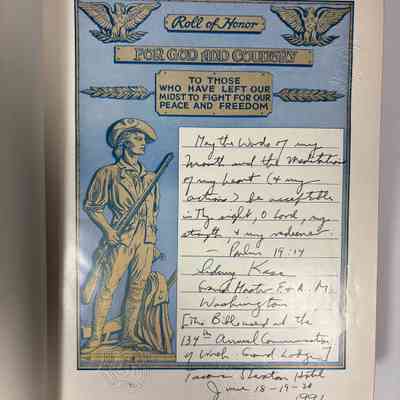 Roll of Honor
FOR GOD AND COUNTRY
TO THOSE
WHO HAVE LEFT OUR
MIDST TO FIGHT FOR OUR
PEACE AND FREEDOM
May the Words of my
Mouth and the meditation
of my heart (& my
actions) be acceptable
in Thy sight, O Lord, my
strength, & my redeemer.
— Psalms 19:14
Sidney Kase
Grand Master F. & A. M.
Washington
[This Bible used at the
134th Annual Communication
of Wash. Grand Lodge]
Tacoma Sheraton Hotel
June 18-19-20
1991